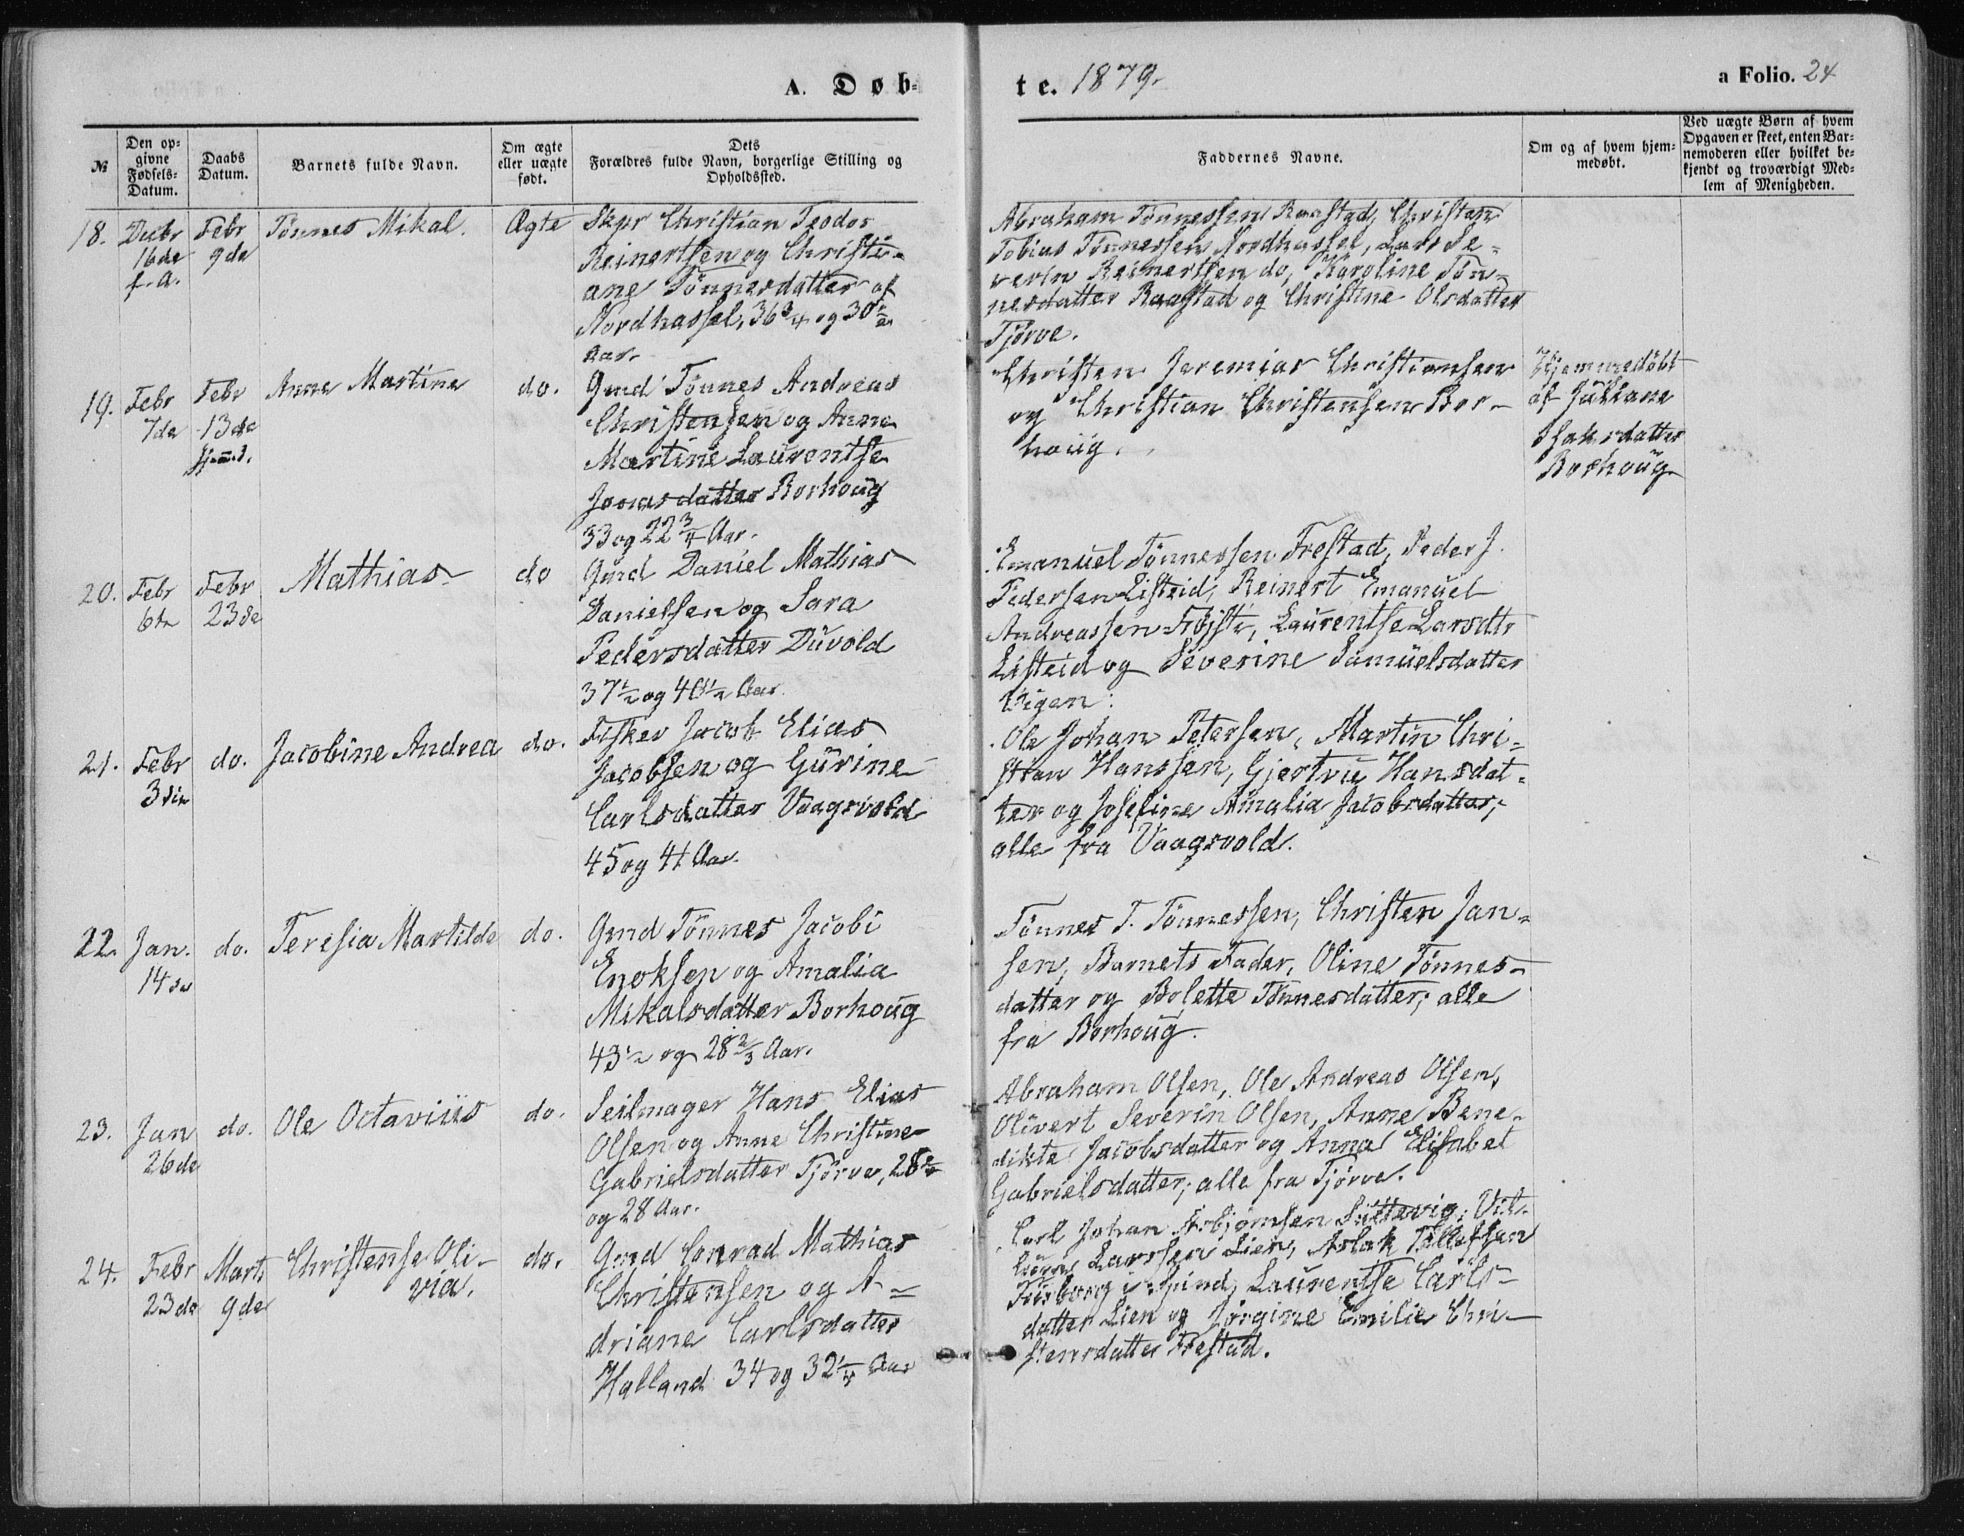 A. Døb-
te. 1879.
a Folio. 24
№
Den op-
givne
Fødsels-
Datum.
Daabs
Datum.
Barnets fulde Navn.
Om ægte
eller uægte
født.
Dets
Forældres fulde Navn, borgerlige Stilling og
Opholdssted.
Faddernes Navne.
Om og af hvem hjem-
medøbt.
Ved uægte Børn af hvem
Opgaven er skeet, enten Bar-
nemoderen eller hvilket be-
kjendt og troværdigt Med-
lem af Menigheden.
18.
Decbr
16de
f. A.
Febr
9de
Tønnes Mikal.
Ægte
Skpr Christian Teodor
Reinertsen og Christi-
ane Tønnesdatter af
Nordhassel, 36 3/4 og 30 1/2
Aar.
Abraham Tønnessen Raastad, Christen
Tobias Tønnessen Nordhassel, Lars Se-
verin Reinertsen do, Karoline Tøn-
nesdatter Raastad og Christine Olsdatter
Tjørve.
19.
Febr
7de
Febr
13de
Anne Martine
do.
Gmd Tønnes Andreas
Christensen og Anne
Martine Laurentse
Jonasdatter Borhoug
33 og 22 3/4 Aar.
Christen Jeremias Christiansen
og Christian Christensen Bor-
houg.
Hjemmedøbt
af Juliane
Isaksdatter
Borhoug
20.
Febr
6te
Febr
23de
Mathias
do
Gmd Daniel Mathias
Danielsen og Sara
Pedersdatter Düvold
37 1/2 og 40 1/2 Aar
Emanuel Tønnessen Frestad, Peder J.
Pedersen Listeid, Reinert Emanuel
Andreassen Røjsti, Laurentse Larsdtr
Listeid og Severine Samuelsdatter
Vigan.
21.
Febr
3die
do.
Jacobine Andrea
do.
Fisker Jacob Elias
Jacobsen og Gurine
Carlsdatter Vaagsvold
45 og 41 Aar.
Ole Johan Petersen, Martin Chri-
stian Hanssen, Gjertrue Hansdat-
ter og Josefine Amalia Jacobsdatter,
alle fra Vaagsvold.
22.
Jan.
14de
do.
Teresia Martilde
do.
Gmd Tønnes Jacobi
Enoksen og Amalia
Mikalsdatter Borhoug
43 1/2 og 28 2/3 Aar.
Tønnes T. Tønnessen, Christen Jan-
sen, Barnets Fader, Oline Tønnes-
datter og Bolette Tønnesdatter, alle
fra Borhoug.
23.
Jan
26de
do.
Ole Octavius
do.
Seilmager Hans Elias
Olsen og Anne Christine
Gabrielsdatter Tjørve, 28
og 28 Aar.
Abraham Olsen, Ole Andreas Olsen,
Olivert Severin Olsen, Anne Bene-
dikte Jacobsdatter og Anna Elisabet
Gabrielsdatter, alle fra Tjørve.
24.
Febr
23de
Marts
9de
Christense Oli-
via.
do.
Gmd Conrad Mathias
Christensen og A-
driane Carlsdatter
Halland 34 og 32 1/4 Aar
Carl Johan Asbjørnsen
Larssen Lien, Aslak Tollefsen
i Spind, Laurentse Carls-
datter Lien og Jørgine Emilie Chri-
stensdatter Frestad.